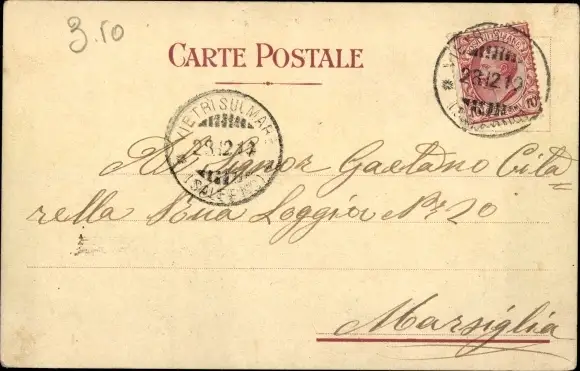 3.50
CARTE POSTALE
VIETRI SUL MARE
23.12.10
(SALERNO)
23.12.10
Al Signor Gaetano Cita=
rella Rua Loggia N° 20
Marsiglia